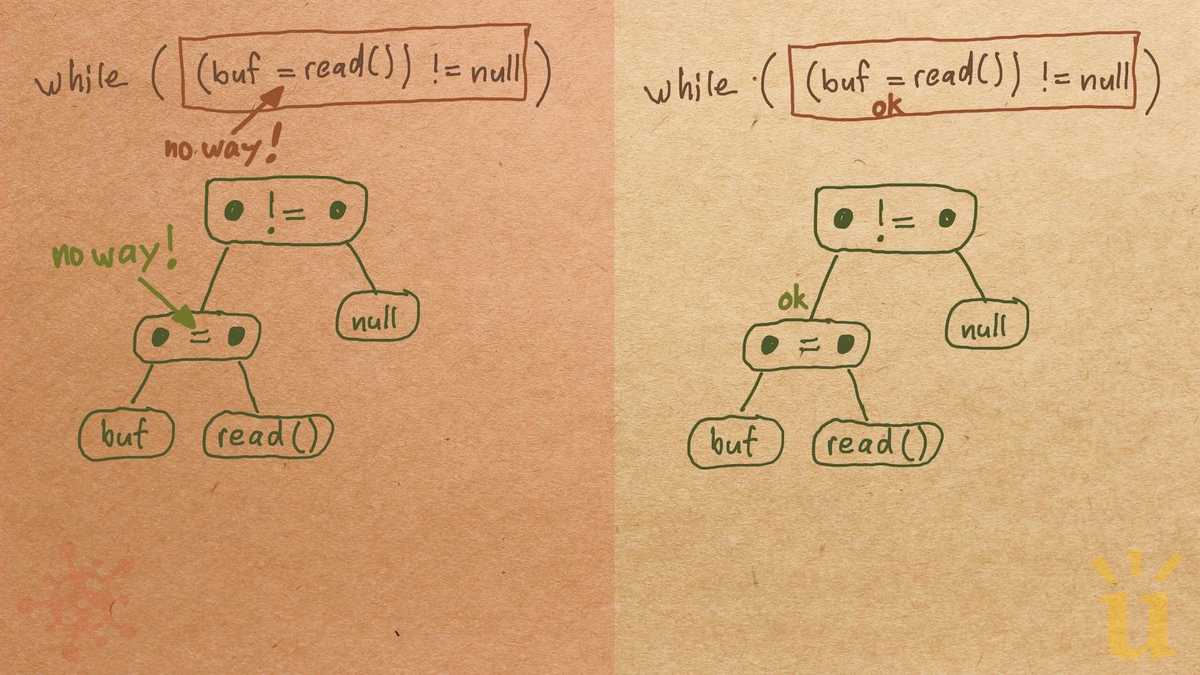 while ( (buf = read()) != null )
no way!
● != ●
no way!
● = ●
null
buf
read()
while ( (buf = read()) != null )
ok
● != ●
ok
● = ●
null
buf
read()
u